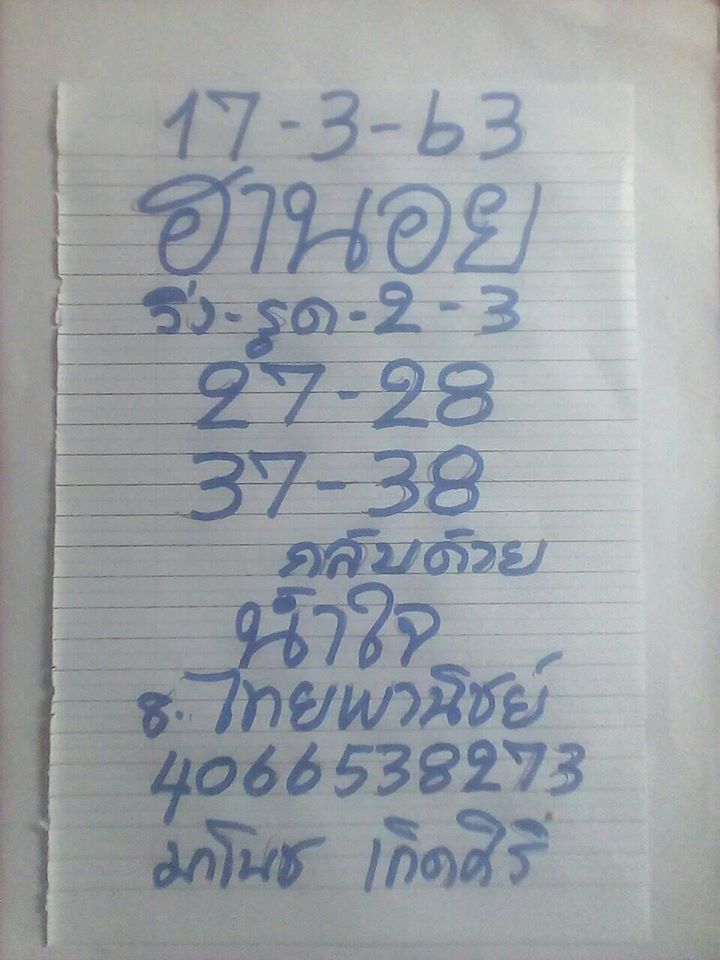 17-3-63
ฮานอย
วิ่ง-รูด-2-3
27-28
37-38
กลับด้วย
น้ำใจ
ธ.ไทยพานิชย์
4066538273
มาโนช เกิดศิริ